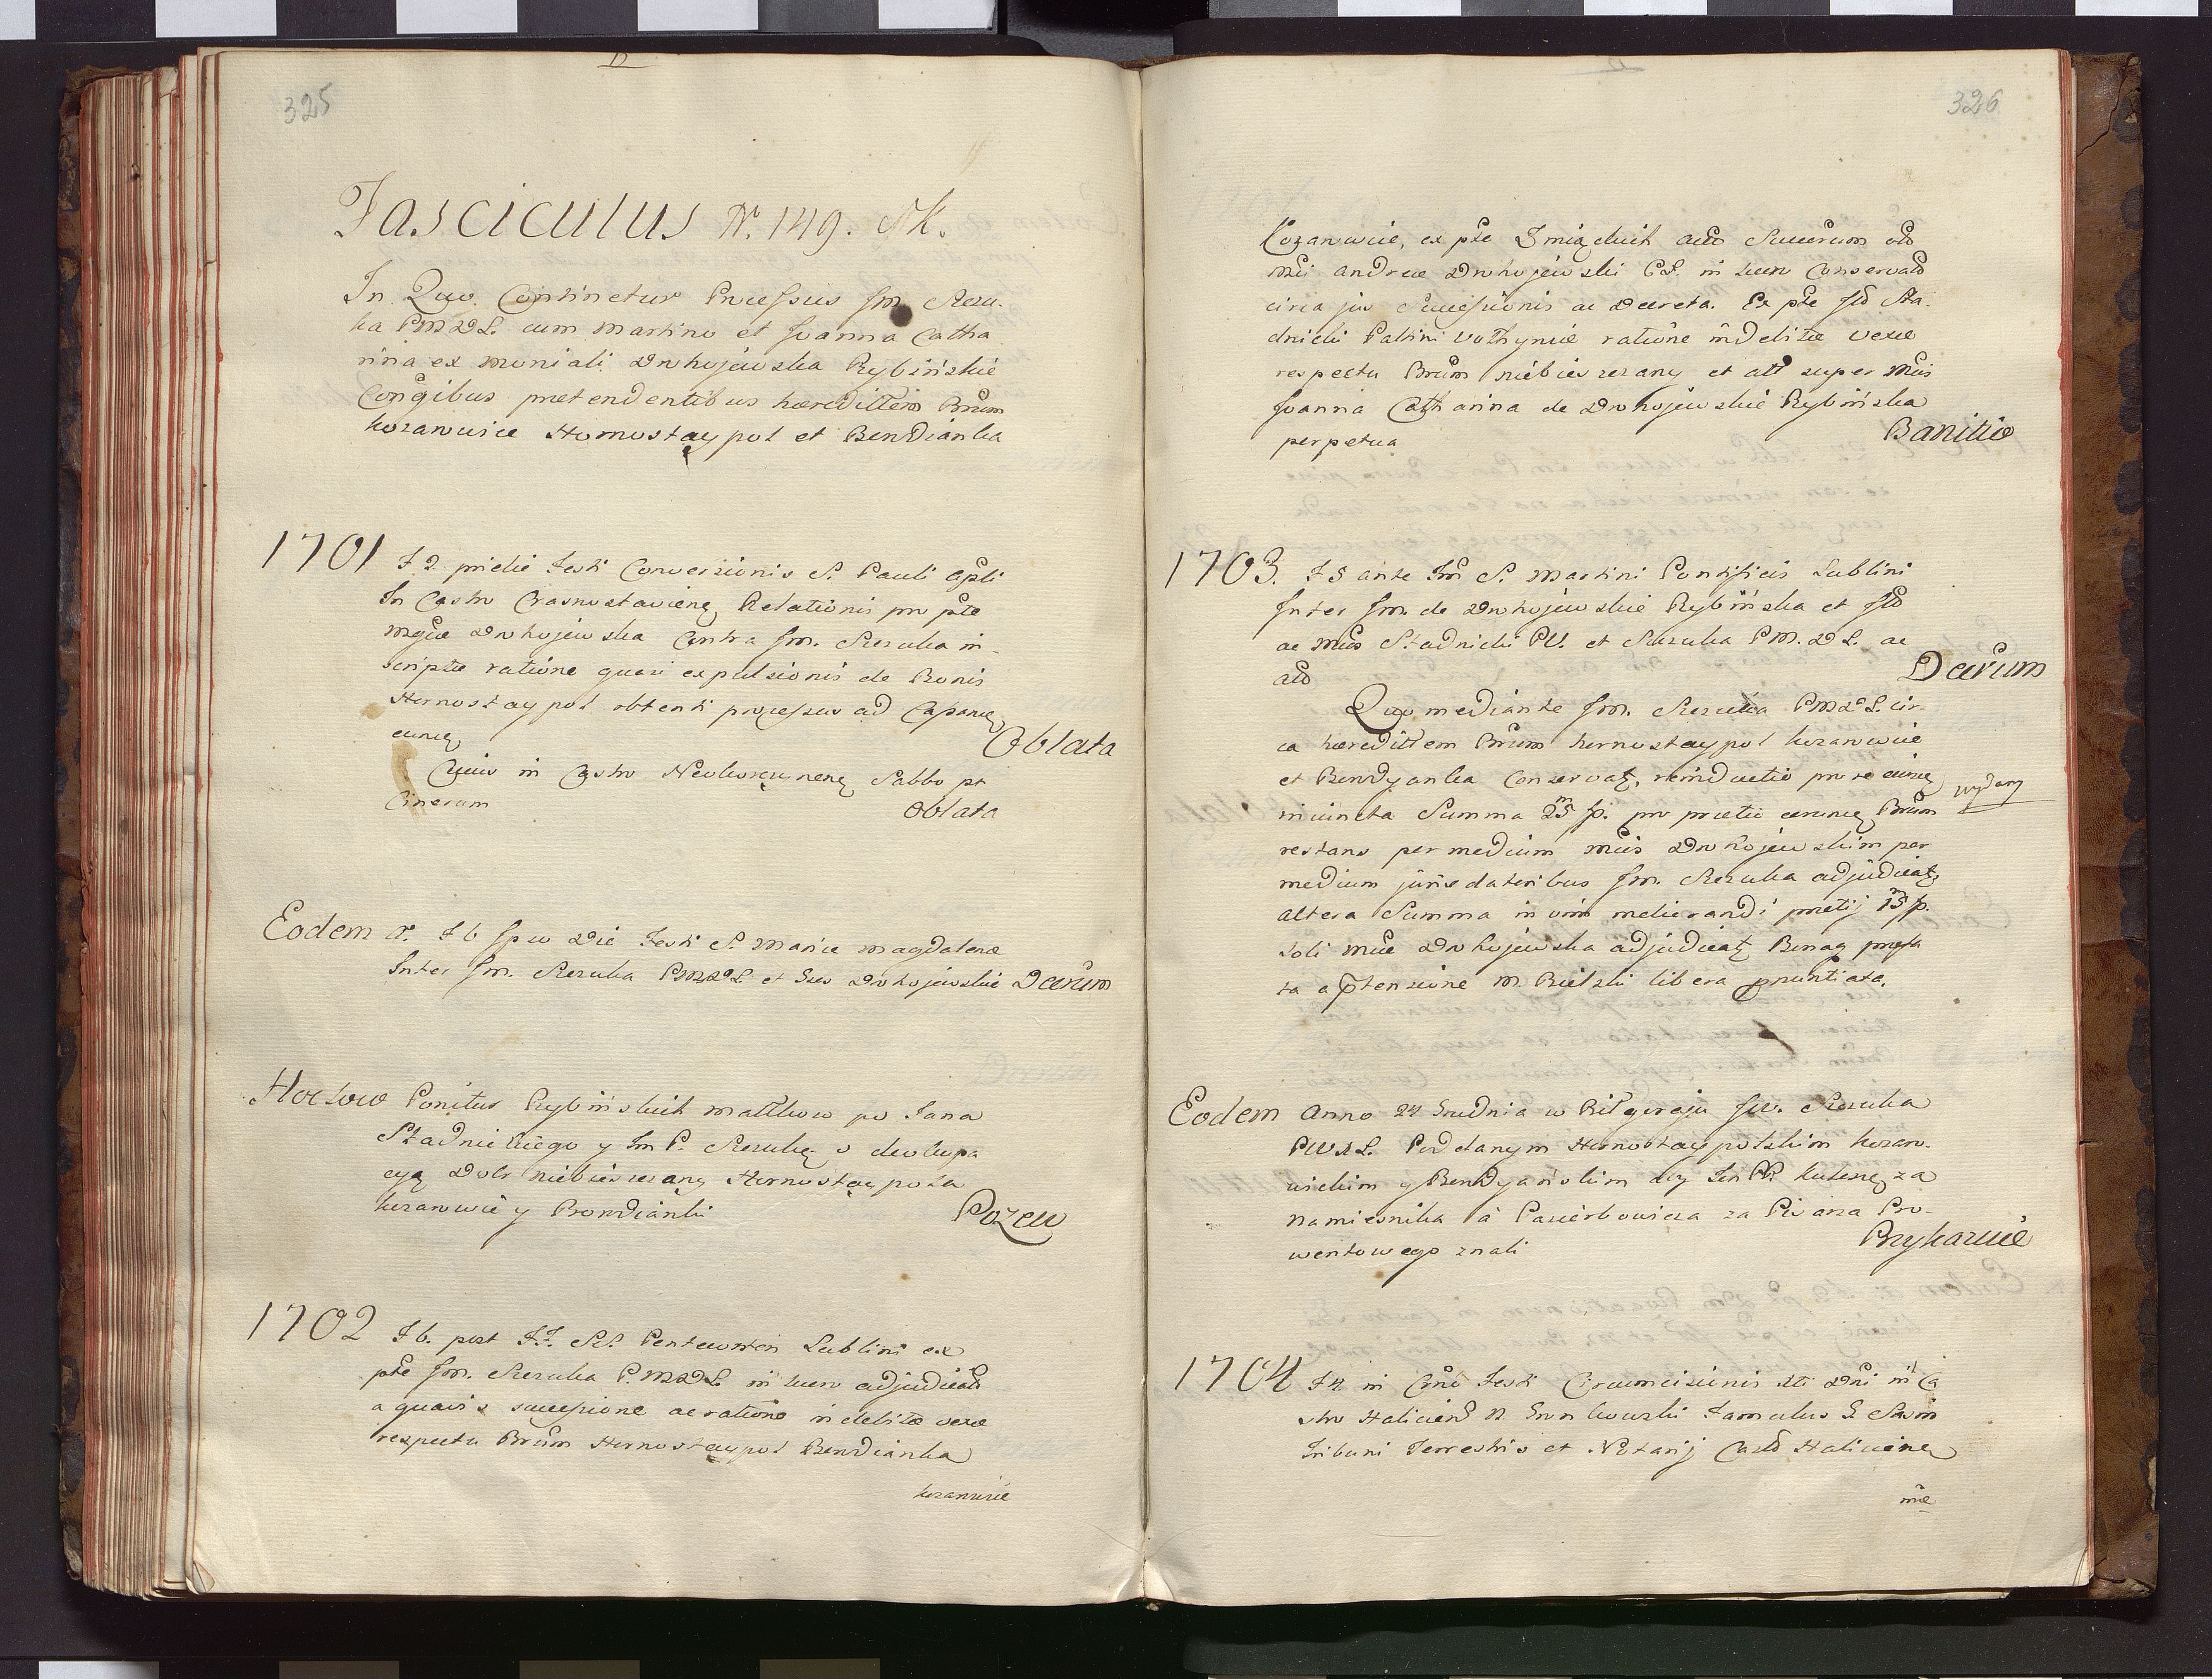 325
Fasciculus N. 149. Sk.
In Quo Continetur Processus Jm. Rzu-
ka PM2DL. cum Martino et Joanna Catha
rina ex moniali Drohojewska Rybińskie
Conĝibus prætendentibus hæredittem Brum
kozarowice Hornostaypol et Bendianka
1701 F 2 pridie Festi Conversionis S. Pauli Apli
In Castro Crasnostavien Relationis pro pte
Mgcæ Drohojewska Contra Jm. Rzzuka in-
scriptæ ratione quasi expulsionis de Bonis
Hornostaypol obtenti processus ad Capanc
eunc Oblata
Cujus in Castro Neokorczynen Sabbo pt
Cinerum Oblata
Eodem A. F 6 Ipso Die Festi S. Mariæ Magdalenæ
Inter Jm. Rzzuka PM2DL et Gsos Drohojewskie Decrum
Hoc Loco Ponitur Rybińskich Małłkow po Jana
Stadnickiego y Jm P. Rzzukę o deokupa
cyą Dobr niebieszczany Hornostaypola
kozarowic y Bondianki Pozew
1702 F 6. post FF. SS. Pentecosten Lublini ex
pte Jm. Rzzuka P.M2DL in suen adjudicati
a quavis successione ac ratione indebitæ vexæ
respectu Brum Hornostaypol Bendianka
kozarowice
326
Kozarowice, ex pte Zmiąckich
Mci Andreæ Drohojewski CS. in suen Conservato
circa jus Successionis ac Decreta. Ex pte Jlo Sta
dnicki Paltini Vothyniæ ratione indebitæ vexæ
respectu Brum niebieszczany et att super Mcis
Joanna Catharina de Drohojewskie Rybińska
perpetua Banitio
1703. F 5 ante Fm S. Martini Pontificis Lublini
Inter Jm. de Drohojewskie Rybińska et Jlo
ac Mcis Stadnicki PV. et Rzzuka PM.2DL. ac
alo Decrum
Quo mediante Jm. Rzzuka PM2DL. cir-
ca hæredittem Brum hornostaypol kozarowice
et Bendyanka Conservat, reinductio pro se
injuncta Summa 25 p. pro prætio earunc Brum wydany
restans per medium Mcis Drohojewskim per
medium juris datoribus Jm. Rzzuka adjudicat,
altera Summa in vim meliorandi prætij 15 p.
soli Mcæ Drohojewska adjudicat Bonaq præfa
ta a ptensione M. Bielski libera pnuntiata.
Eodem Anno 24 Grudnia w Biłgoraju Jw. Rzzuka
PWXL. Poddanym Hornostaypolskim kozaro-
wickim y Bendyańskim aby Jm PP. kutesze za
namiesnika á Pasierbowicza za Pisarza Pro-
wentowego znali Przykazuie
1704 F 4 in Crno Festi Circumcisionis Xti Dni in Ca
stro Halicien N. Famulus G. Swom
Tribuni Terrestris et Notarij Castr Halicien
mæ